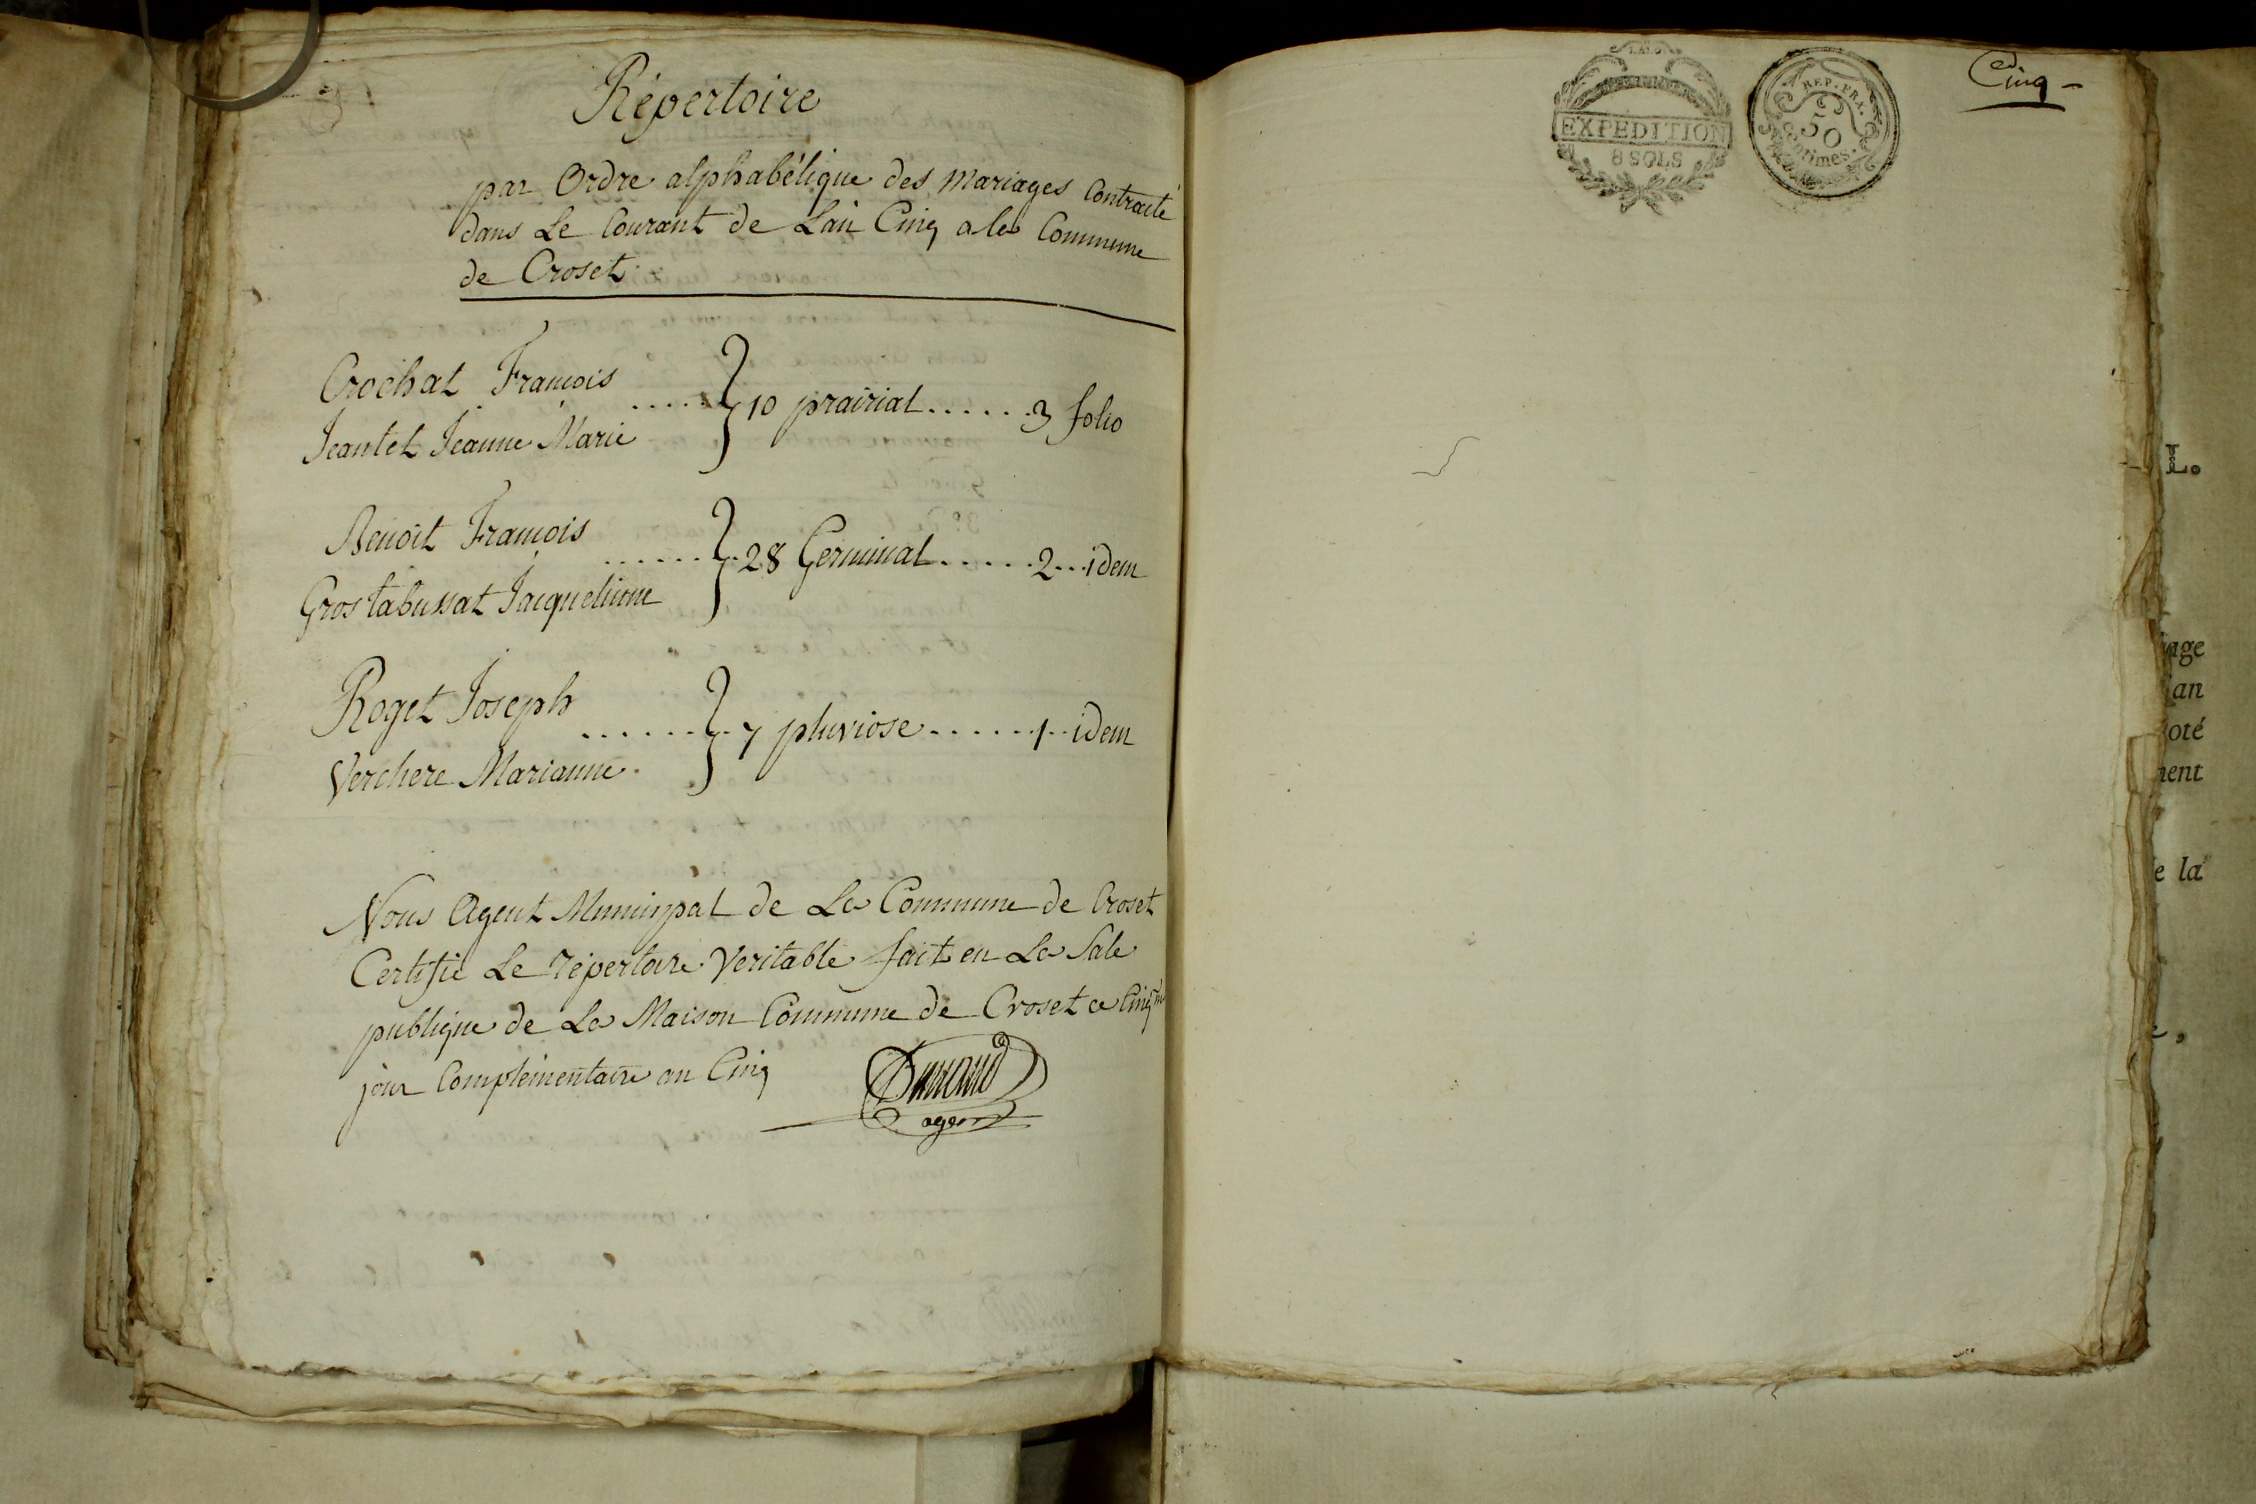 Répertoire
par Ordre alphabétique des Mariages Contracté
dans Le Courant de Lan Cinq a la Commune
de Croset
Crochat François
Jeantet Jeanne Marie
} 10 prairial ...... 3 folio
Benoit François
Gros tabussat Jacquelinne
} 28 Germinal ...... 2 ... idem
Roget Joseph
Verchere Marianne
} 7 pluviose ...... 1 .. idem
Nous Agent Municipal de La Commune de Croset
Certifie Le répertoire Veritable fait en La Sale
publique de La Maison Commune de Croset ce Cinqm
jour Complémentaire an Cinq
Durand
agent
EXPEDITION
8 SOLS
REP. FRA.
50
Centimes.
Cinq
L.
age
an
oté
ment
e la